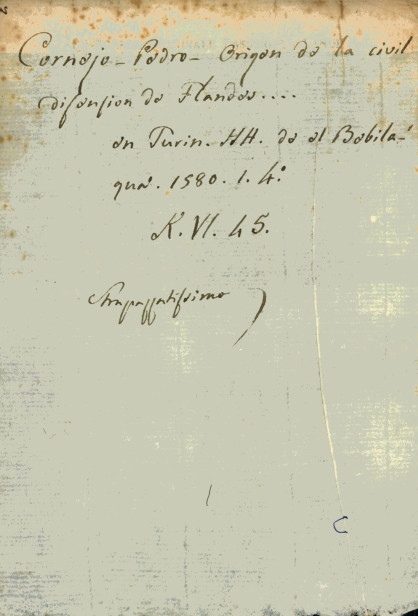 Cornejo - Pedro - Origen de la civil
disension de Flandes....
en Turin. HH. de el Bebila-
qua. 1580. 1. 4.º
K. VI. 45.
Strapazzatissimo